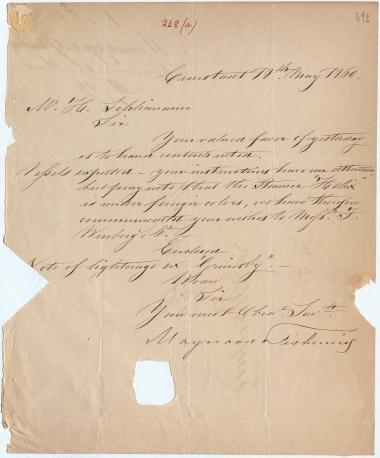 218(a)
692
Cronstadt 19th May 1850.
Mr. H. Schliemann
Sir
Your valued favor of yesterday
is to hand contents noted.
Vessels expected – your instructions have our attention
but pray note that the Steamer "Helix"
is under foreign colors, we have therefore
communicated your wishes to Messrs. T.
Winberg & Co.
Enclosed
Note of lighterage ex "Grimsby". –
We are
Sir
Your most Obedt. Servts.
Maynard &